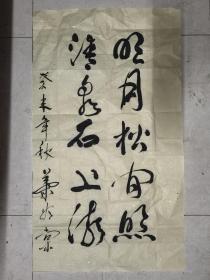 明月松间照
清泉石上流
癸未年秋